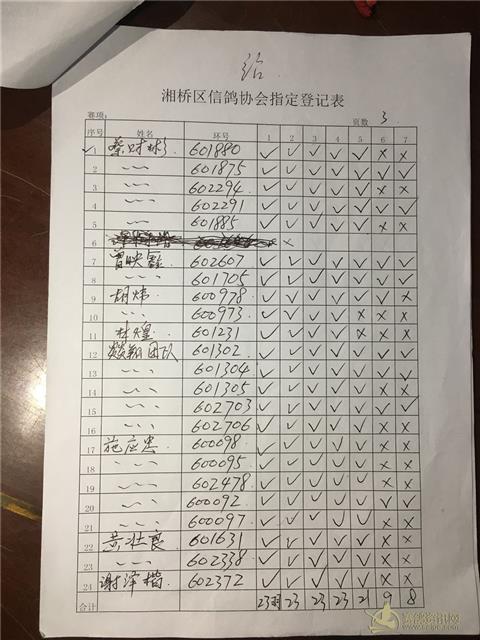 湘桥区信鸽协会指定登记表
赛项: 页数 3
序号 姓名 环号 1 2 3 4 5 6 7
✓1 蔡财彬 601880 ✓ ✓ ✓ ✓ ✓ × ×
2 〃 601875 ✓ ✓ ✓ ✓ ✓ ✓ ✓
3 〃 602294 ✓ ✓ ✓ ✓ ✓ × ×
4 〃 602291 ✓ ✓ ✓ ✓ ✓ ✓ ✓
5 〃 601885 ✓ ✓ ✓ ✓ ✓ × ×
6
7 曾映 602607 ✓ ✓ ✓ ✓ ✓ ✓ ✓
8 〃 601705 ✓ ✓ ✓ ✓ ✓ ✓ ✓
9 胡炜 600978 ✓ ✓ ✓ ✓ ✓ ✓ ×
10 〃 600973 ✓ ✓ ✓ ✓ × × ×
11 林煌 601231 ✓ ✓ ✓ ✓ × × ×
12 燚翔团队 601302 ✓ ✓ ✓ ✓ ✓ ✓ ✓
13 〃 601304 ✓ ✓ ✓ ✓ ✓ ✓ ✓
14 〃 601305 ✓ ✓ ✓ ✓ ✓ × ×
15 〃 602703 ✓ ✓ ✓ ✓ ✓ ✓ ✓
16 〃 602706 ✓ ✓ ✓ ✓ ✓ × ×
17 施应忠 600098 ✓ ✓ ✓ ✓ ✓ × ×
18 〃 600095 ✓ ✓ ✓ ✓ ✓ × ×
19 〃 602478 ✓ ✓ ✓ ✓ ✓ × ×
20 〃 600092 ✓ ✓ ✓ ✓ ✓ ✓ ✓
21 〃 600097 ✓ ✓ ✓ ✓ ✓ × ×
22 黄壮良 601631 ✓ ✓ ✓ ✓ ✓ × ×
23 〃 602338 ✓ ✓ ✓ ✓ ✓ × ×
24 谢泽楷 602372 ✓ ✓ ✓ ✓ ✓ × ×
合计 23羽 23 23 23 21 9 8